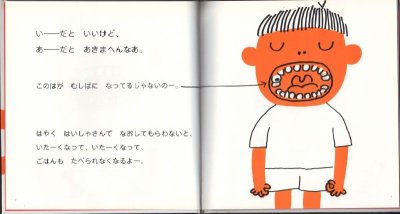 い——だと いいけど、
あ——だと あきまへんなあ。
このはが むしばに なってるじゃないのー。
はやく はいしゃさんで なおしてもらわないと、
いたーくなって、いたーくなって、
ごはんも たべられなくなるよー。